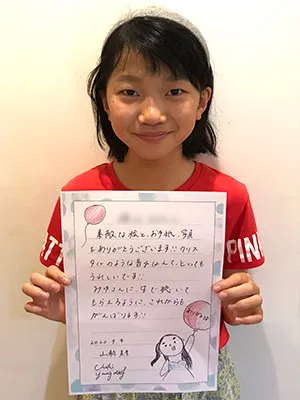 素敵な と、お手紙、写真
をありがとうございます!! クリス
タルのような音 なんて、とっても
うれしいです!!
みゆさんに、 いて
もらえるように、これからも
がんばります!!
2020.9.
山
TT
PIN